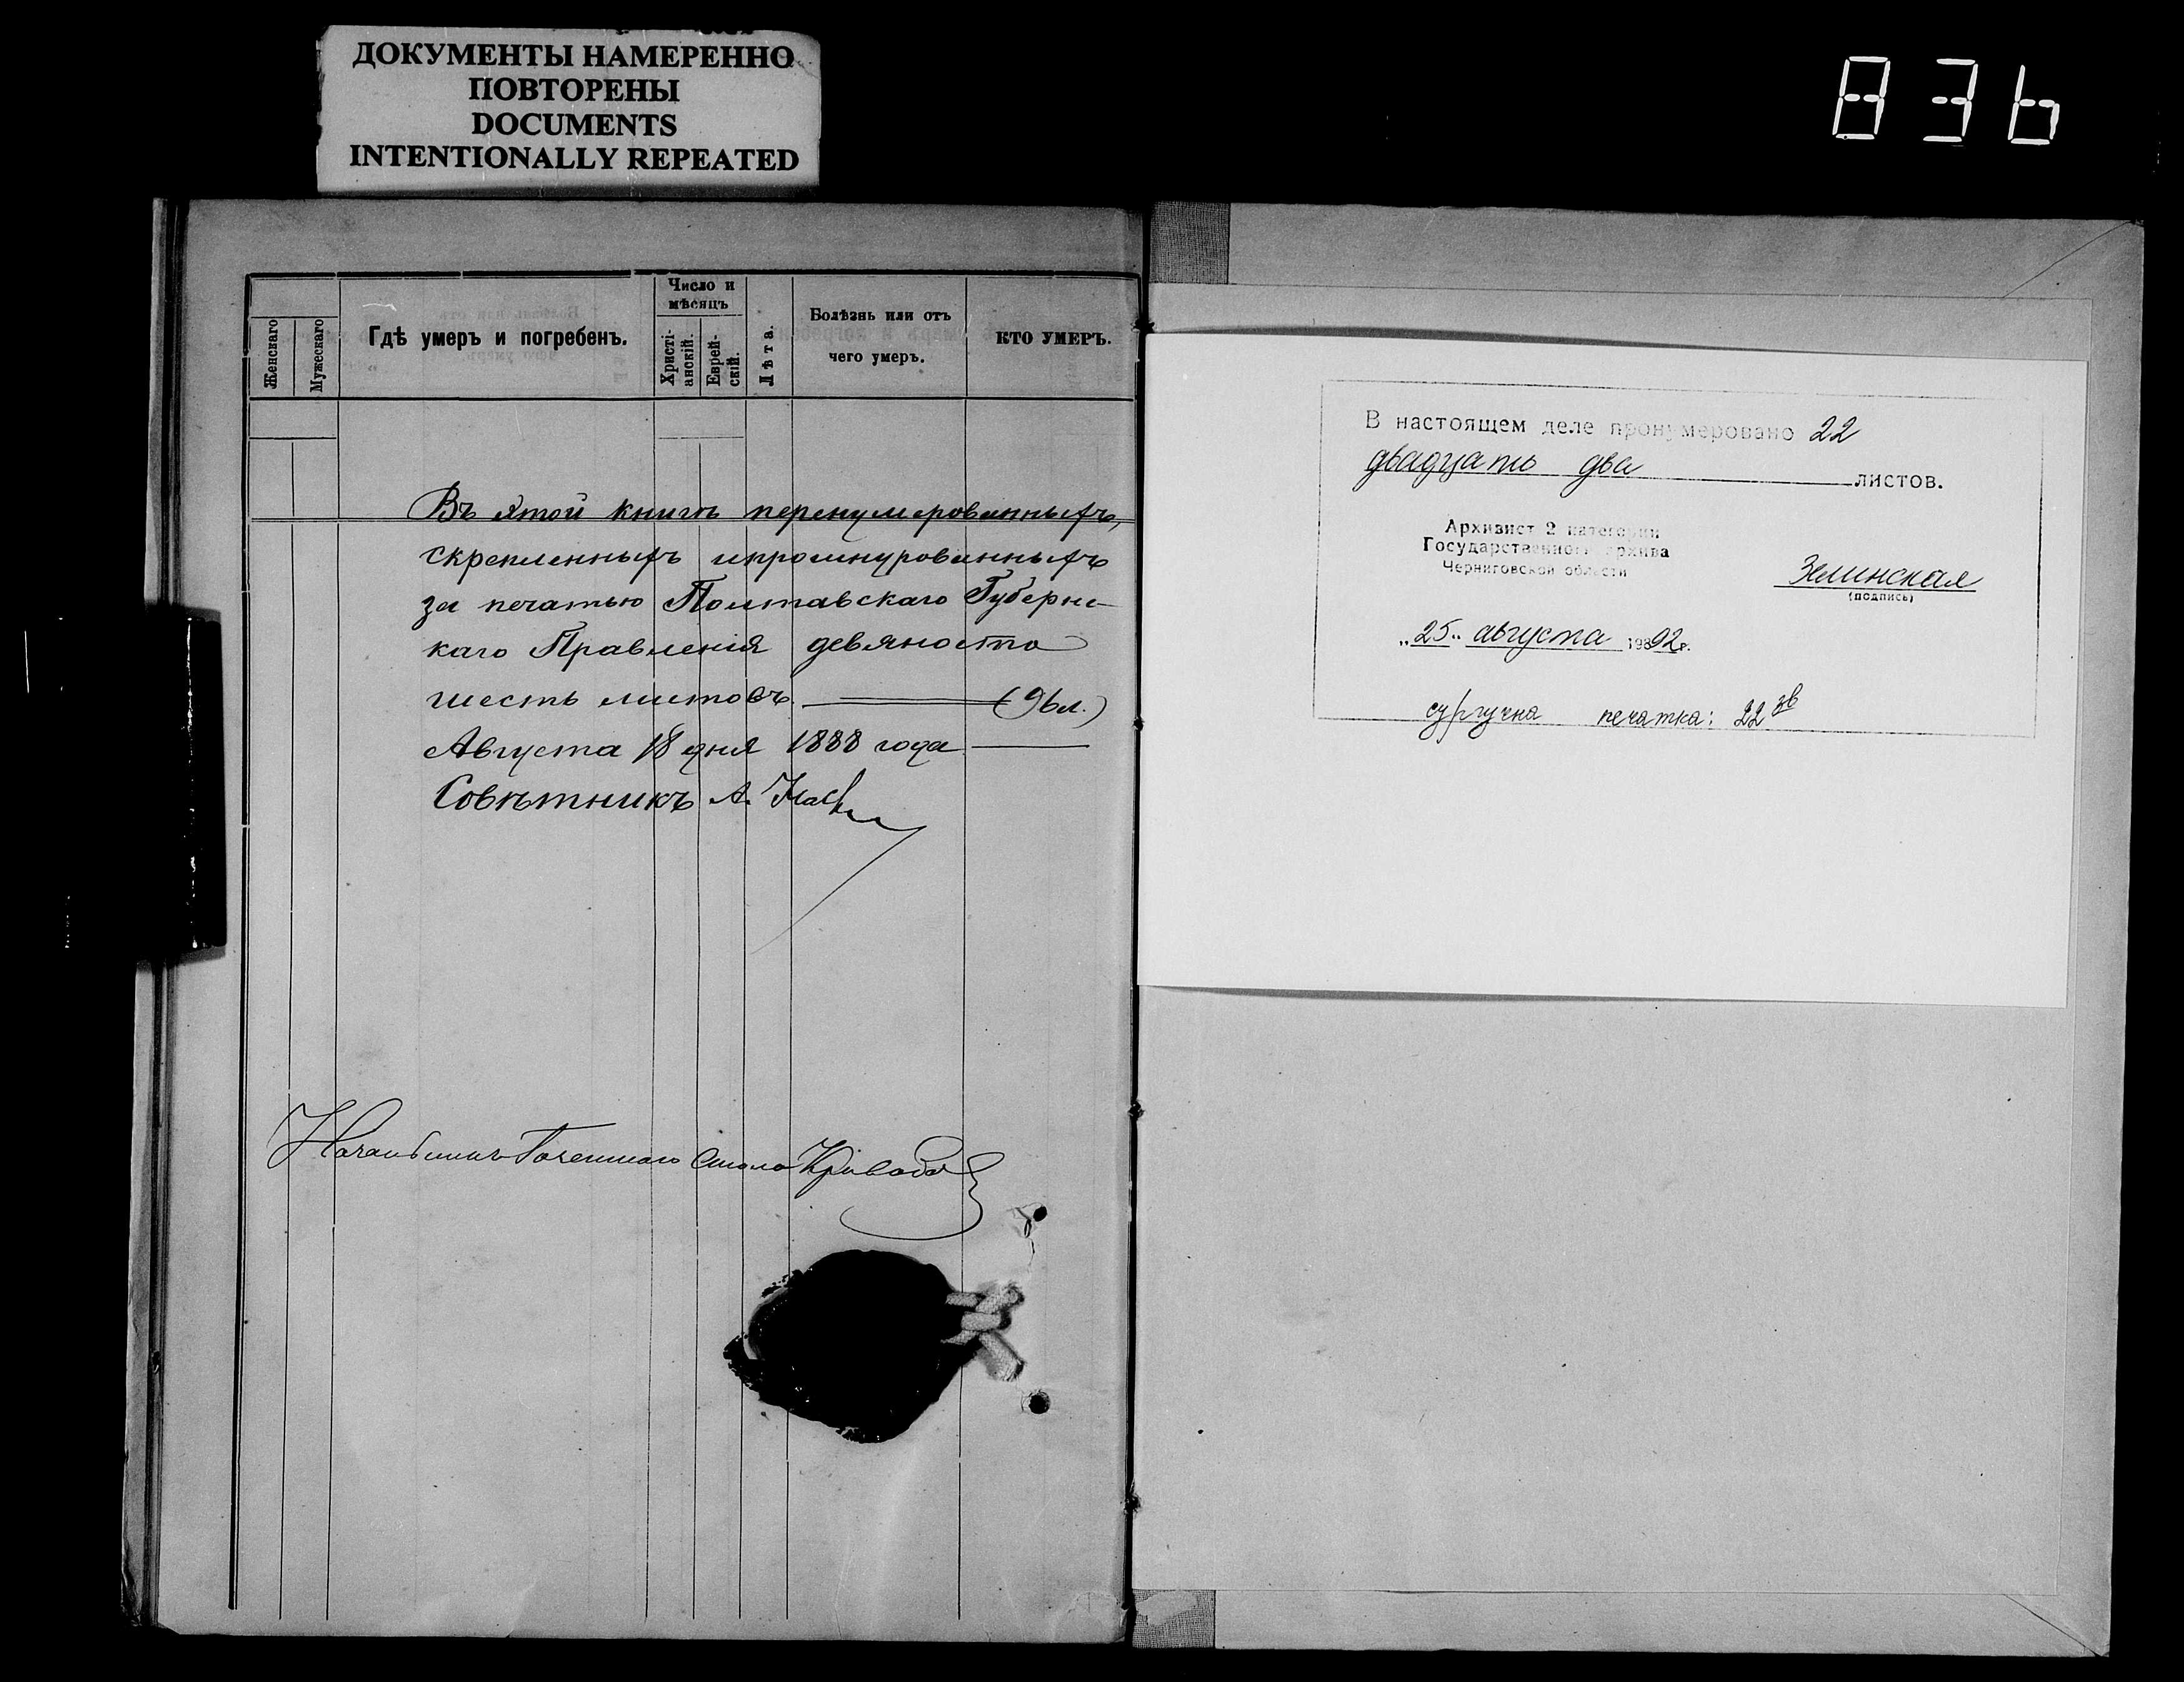 ДОКУМЕНТЫ НАМЕРЕННО
ПОВТОРЕНЫ
DOCUMENTS
INTENTIONALLY REPEATED
836
Женскаго
Мужескаго
Гдѣ умеръ и погребенъ.
Число и
мѣсяцъ
Христі-
анскій.
Еврей-
скій.
Лѣта.
Болѣзнь или отъ
чего умеръ.
КТО УМЕРЪ.
Въ этой книгѣ перенумерованныхъ,
скрепленныхъ и прошнурованныхъ
за печатью Полтавскаго Губернс-
каго Правленія девяносто
шесть листовъ (96 л.)
Августа 18 дня 1888 года
Совѣтникъ А.
Стола
В настоящем деле пронумеровано 22
двадцать два листов.
Архивист 2 категории
Государственного архива
Черниговской области
Зелинская
(подпись)
„25" августа 1992г.
сургучна печатка: 22 зв